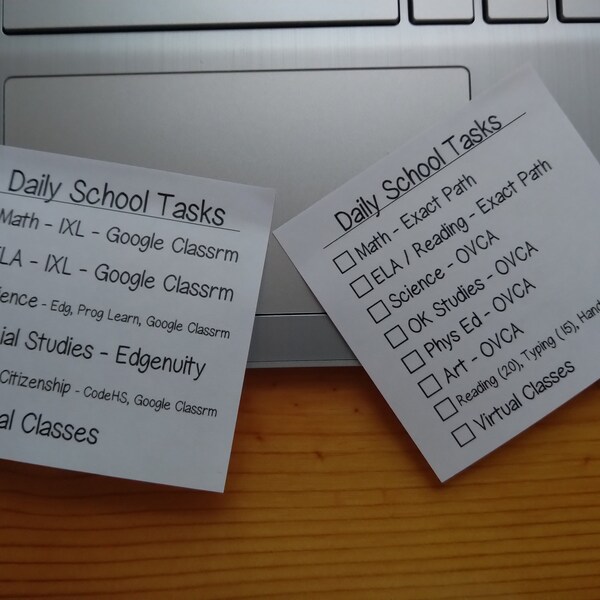 Daily School Tasks
Math - IXL - Google Classrm
ELA - IXL - Google Classrm
Science - Edg, Prog Learn, Google Classrm
Social Studies - Edgenuity
Citizenship - CodeHS, Google Classrm
Virtual Classes
Daily School Tasks
Math - Exact Path
ELA / Reading - Exact Path
Science - OVCA
OK Studies - OVCA
Phys Ed - OVCA
Art - OVCA
Reading (20), Typing (15), Hand
Virtual Classes